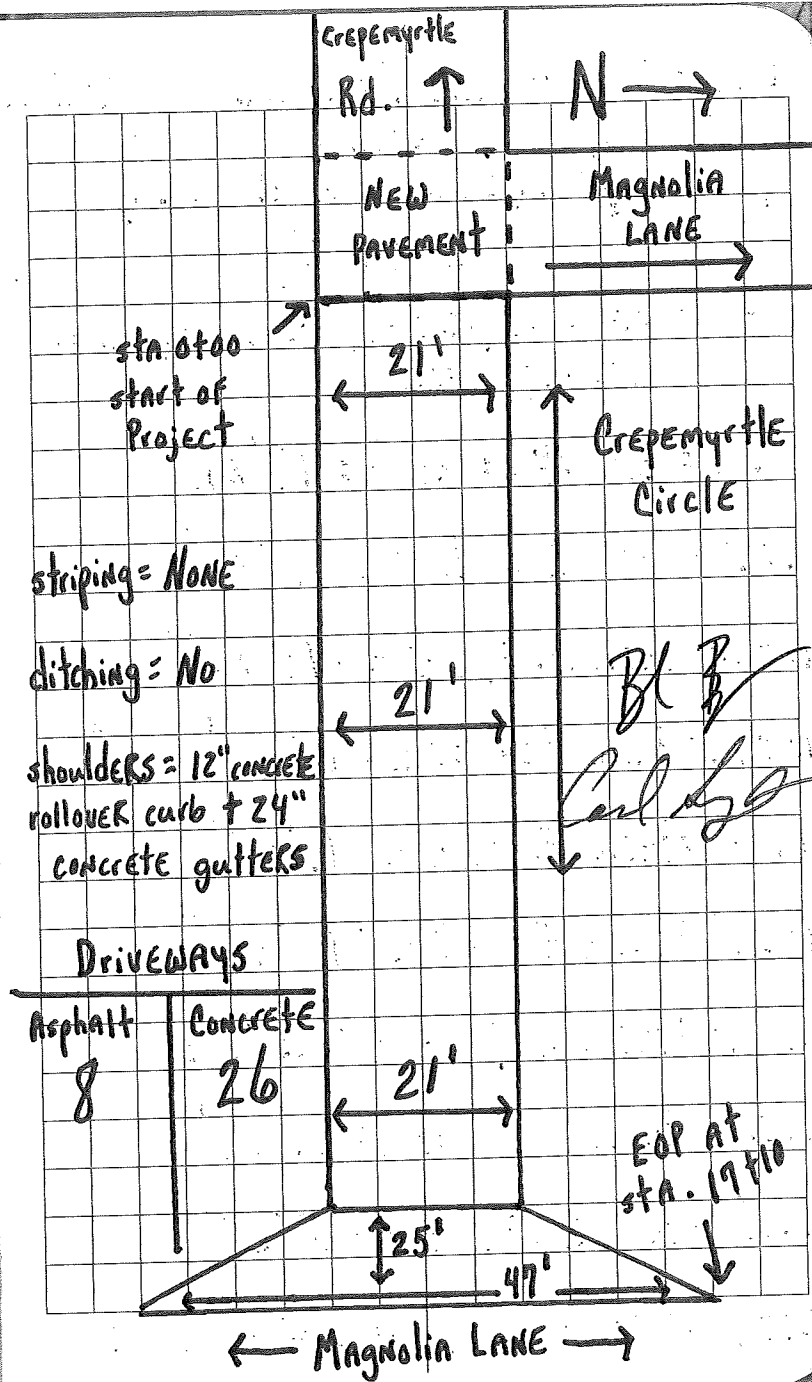 Crepemyrtle
Rd.
N
NEW
PAVEMENT
Magnolia
LANE
sta 0+00
start of
Project
21'
Crepemyrtle
Circle
striping = NONE
ditching = No
21'
shoulders = 12" concrete
rollover curb + 24"
concrete gutters
Driveways
Asphalt
Concrete
8
26
21'
EOP At
sta. 17+10
25'
47'
Magnolia LANE